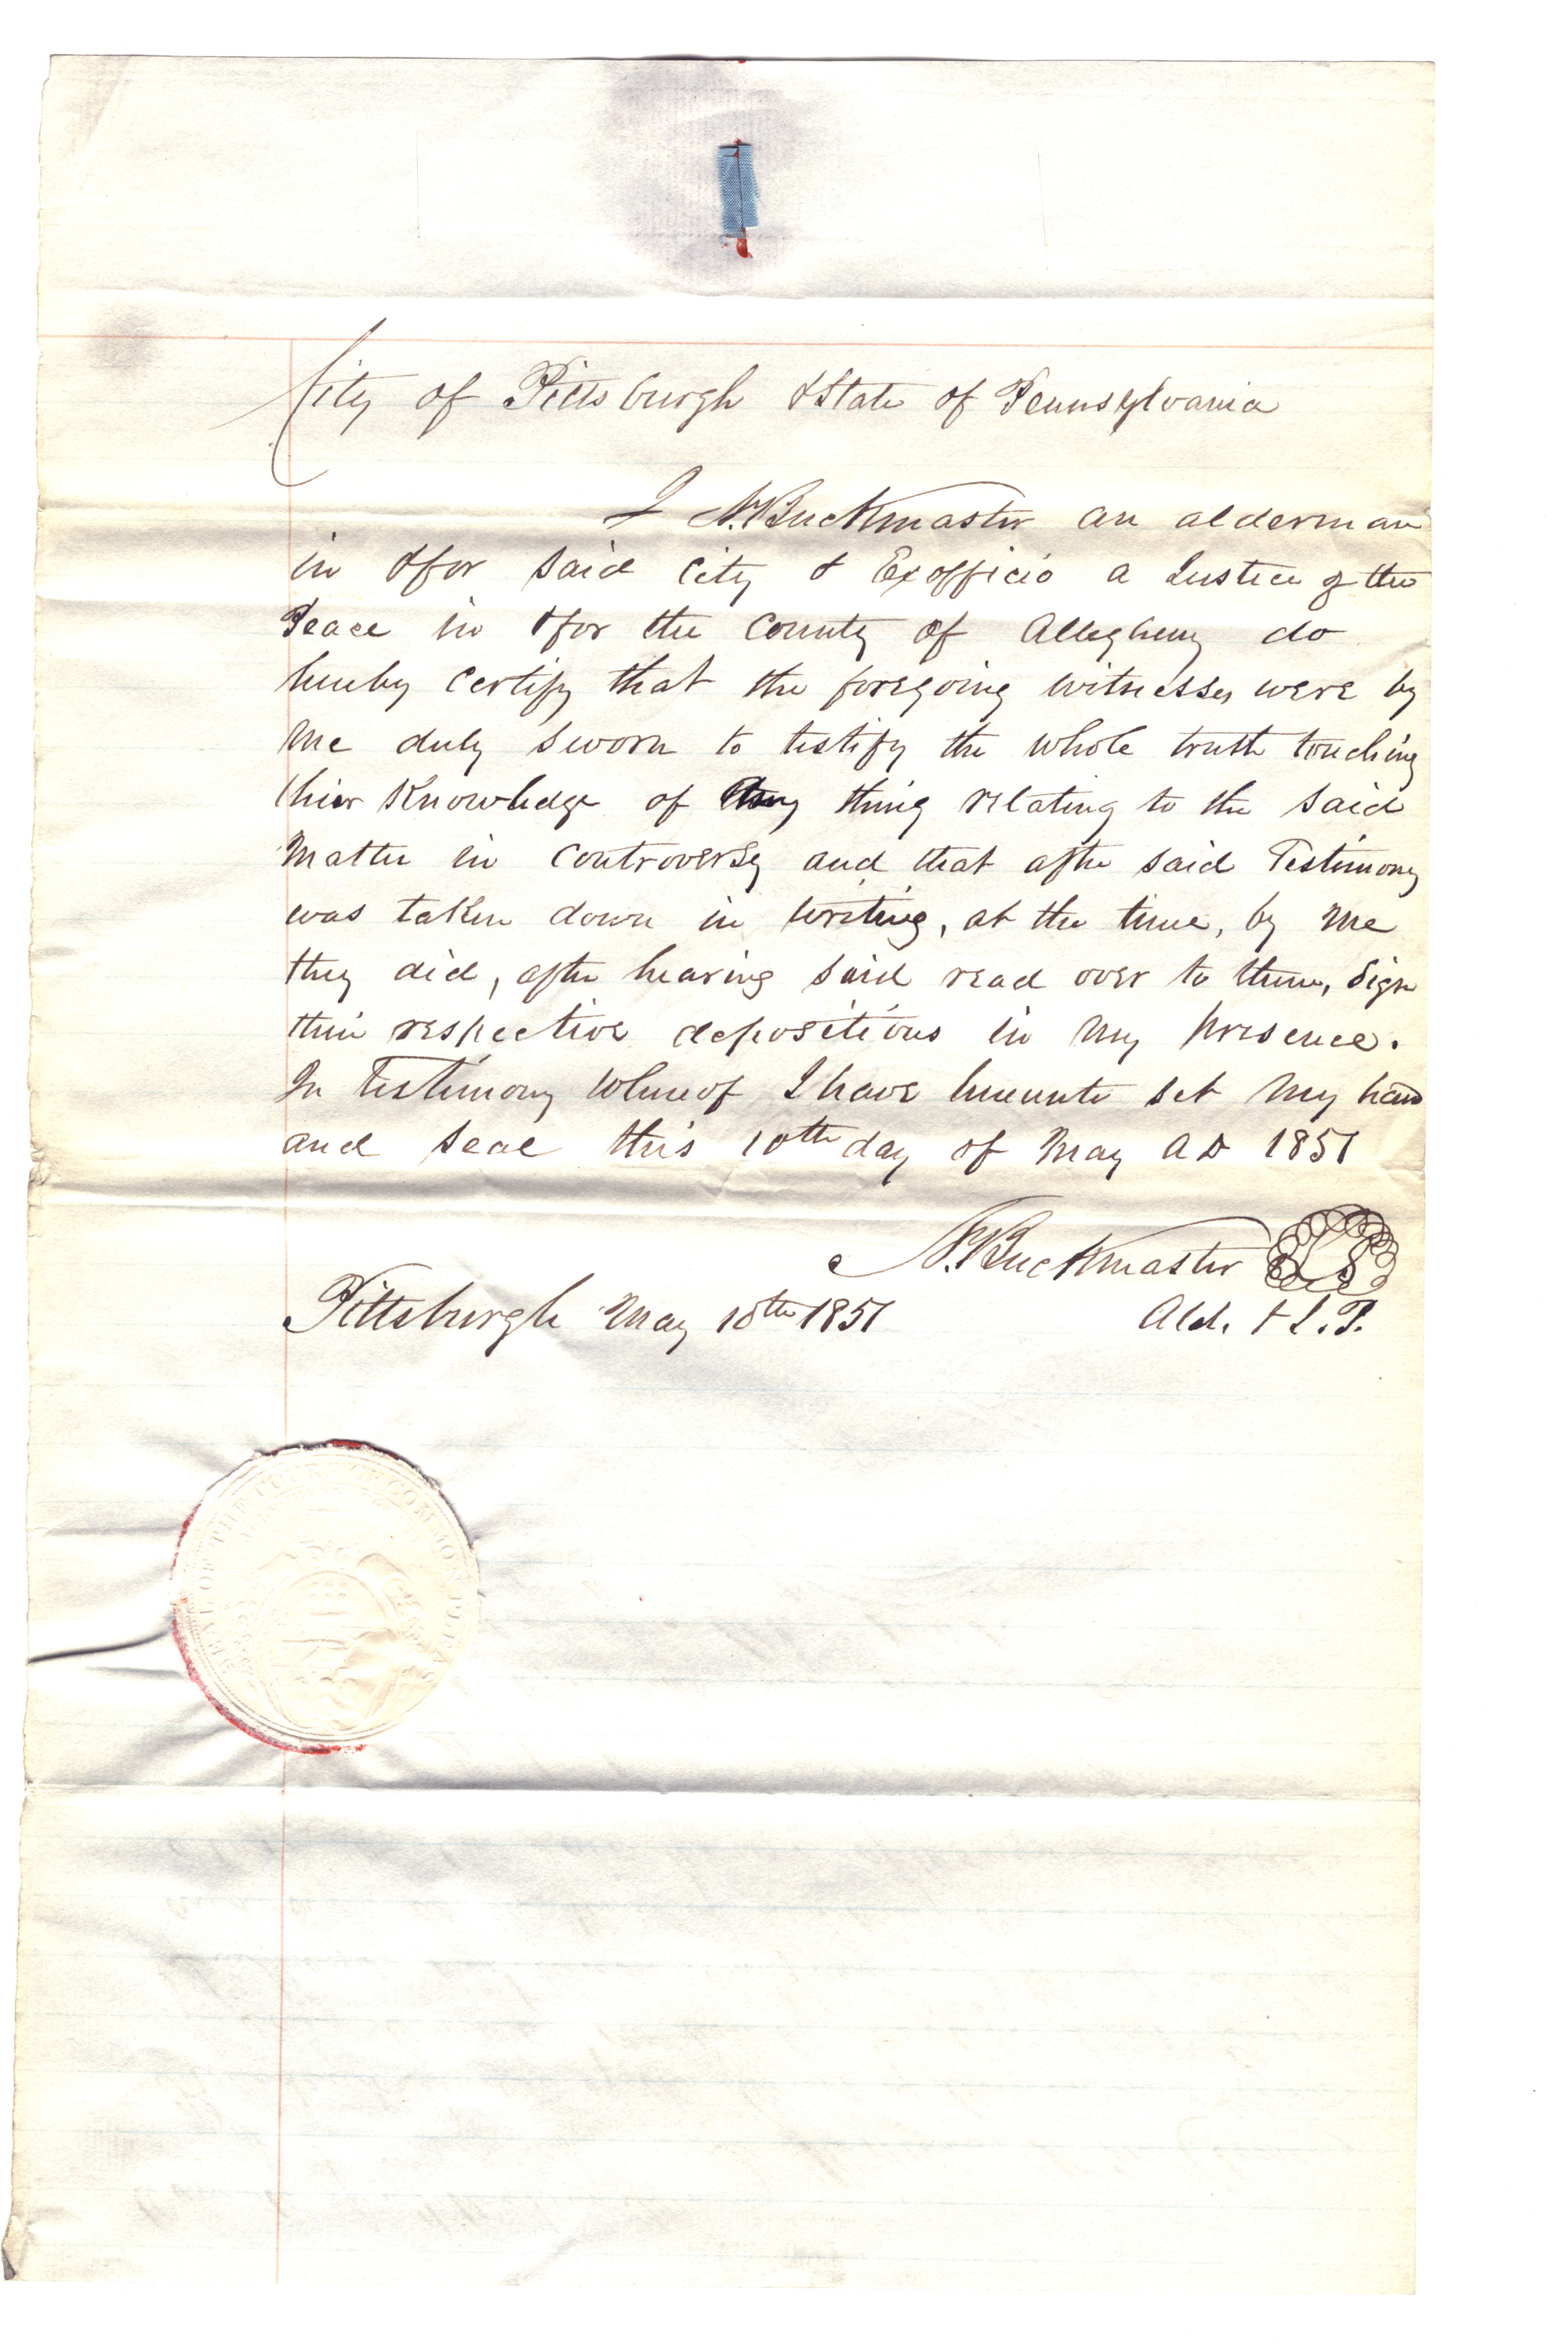 City of Pittsburgh & State of Pennsylvania
I N. Buckmaster an alderman
in & for said City & Exofficio a Justice of the
Peace in & for the County of Allegheny do
hereby certify that the foregoing witnesses were by
me duly sworn to testify the whole truth touching
thier Knowledge of any thing relating to the said
Matter in controversy and that after said Testimony
was taken down in writing, at the time, by me
they did, after hearing said read over to them, sign
their respective depositions in my presence.
In Testimony whereof I have hereunto set my hand
and seal this 10th day of May AD 1851
N. Buckmaster LS
Pittsburgh May 10th 1851 Ald. & J.P.
SEAL OF THE COURT OF COMMON PLEAS